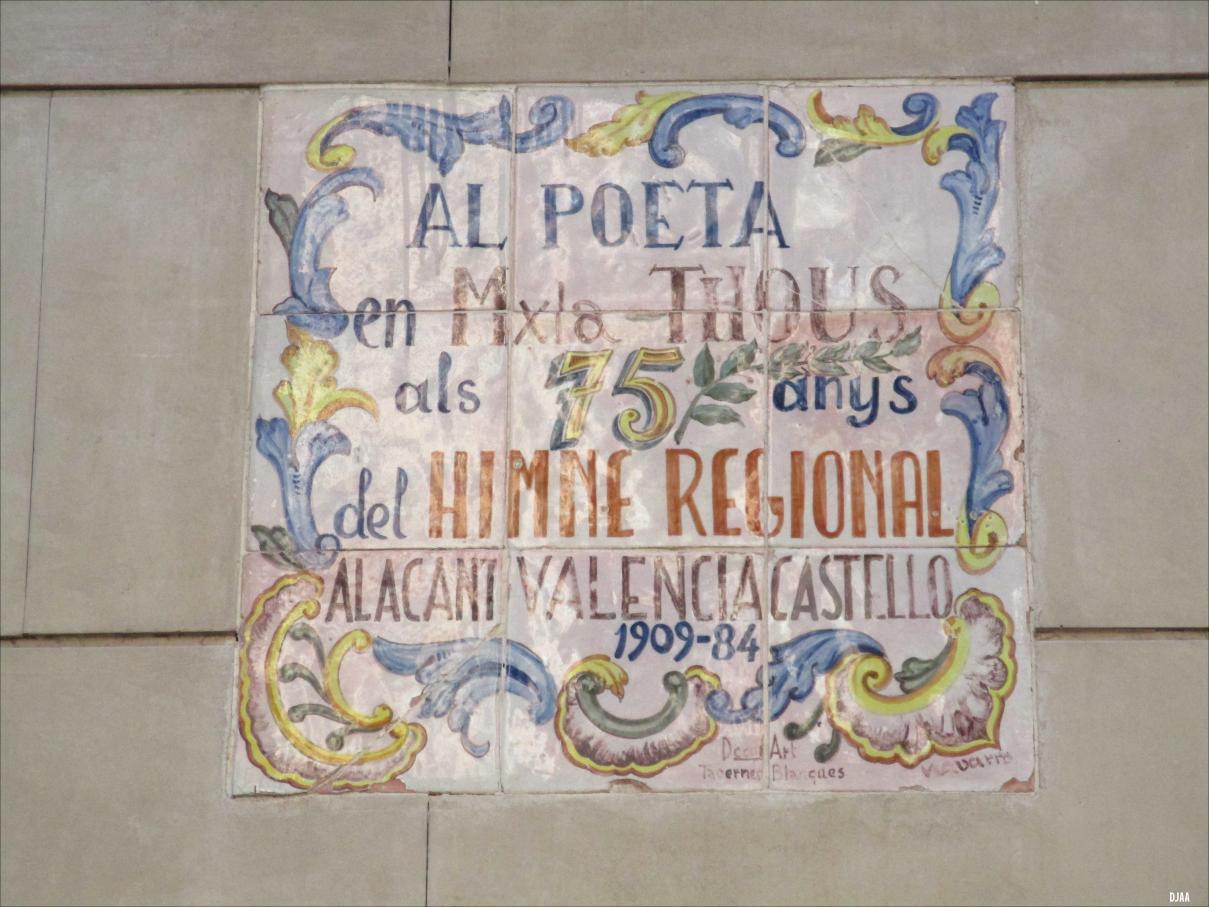 AL POETA
en Mxla THOUS
als 75 anys
del HIMNE REGIONAL
ALACANT VALENCIA CASTELLO
1909-84
Decor Art
Tacernes Blanques
Navarro
DJAA